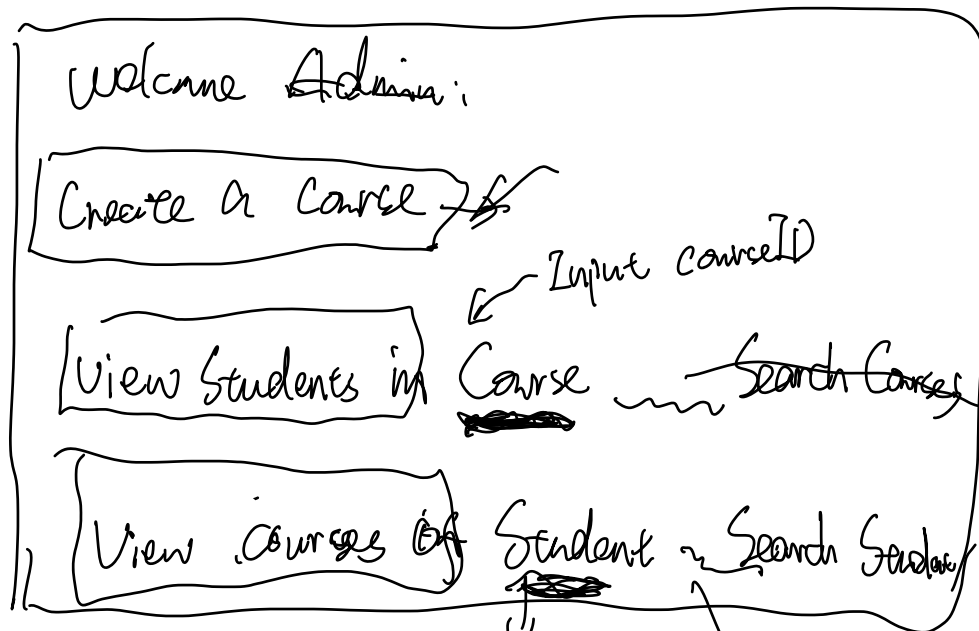 Welcome Admin:
Create a Course
Input courseID
View Students in Course Search Courses
View courses of Student Search Student